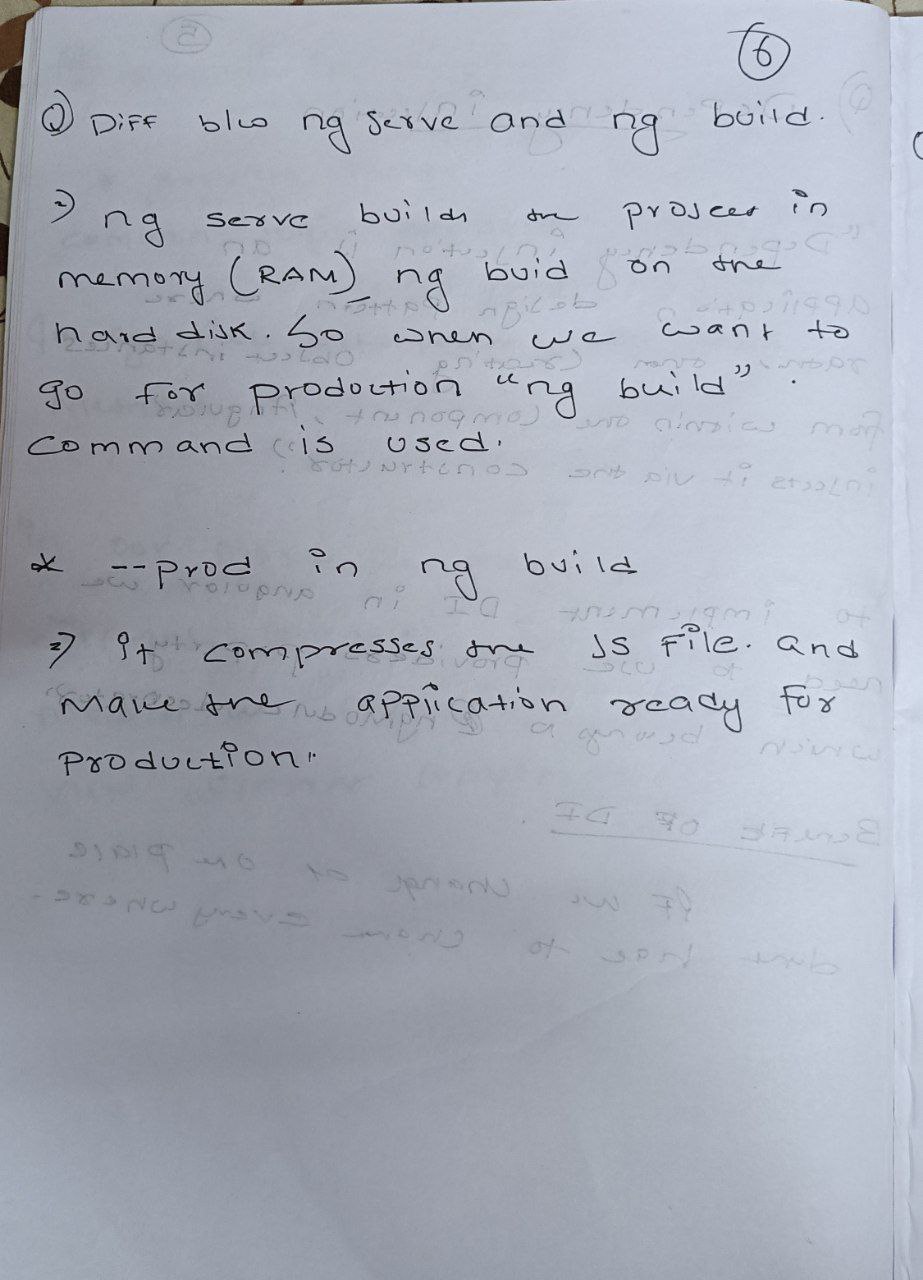 6
Q) Diff b/w ng serve and ng build.
=) ng serve builds the project in
memory (RAM) ng buid on the
hard disk. So when we want to
go for production "ng build".
command is used.
* --prod in ng build
=) It compresses the JS File. and
Make the application ready for
production.